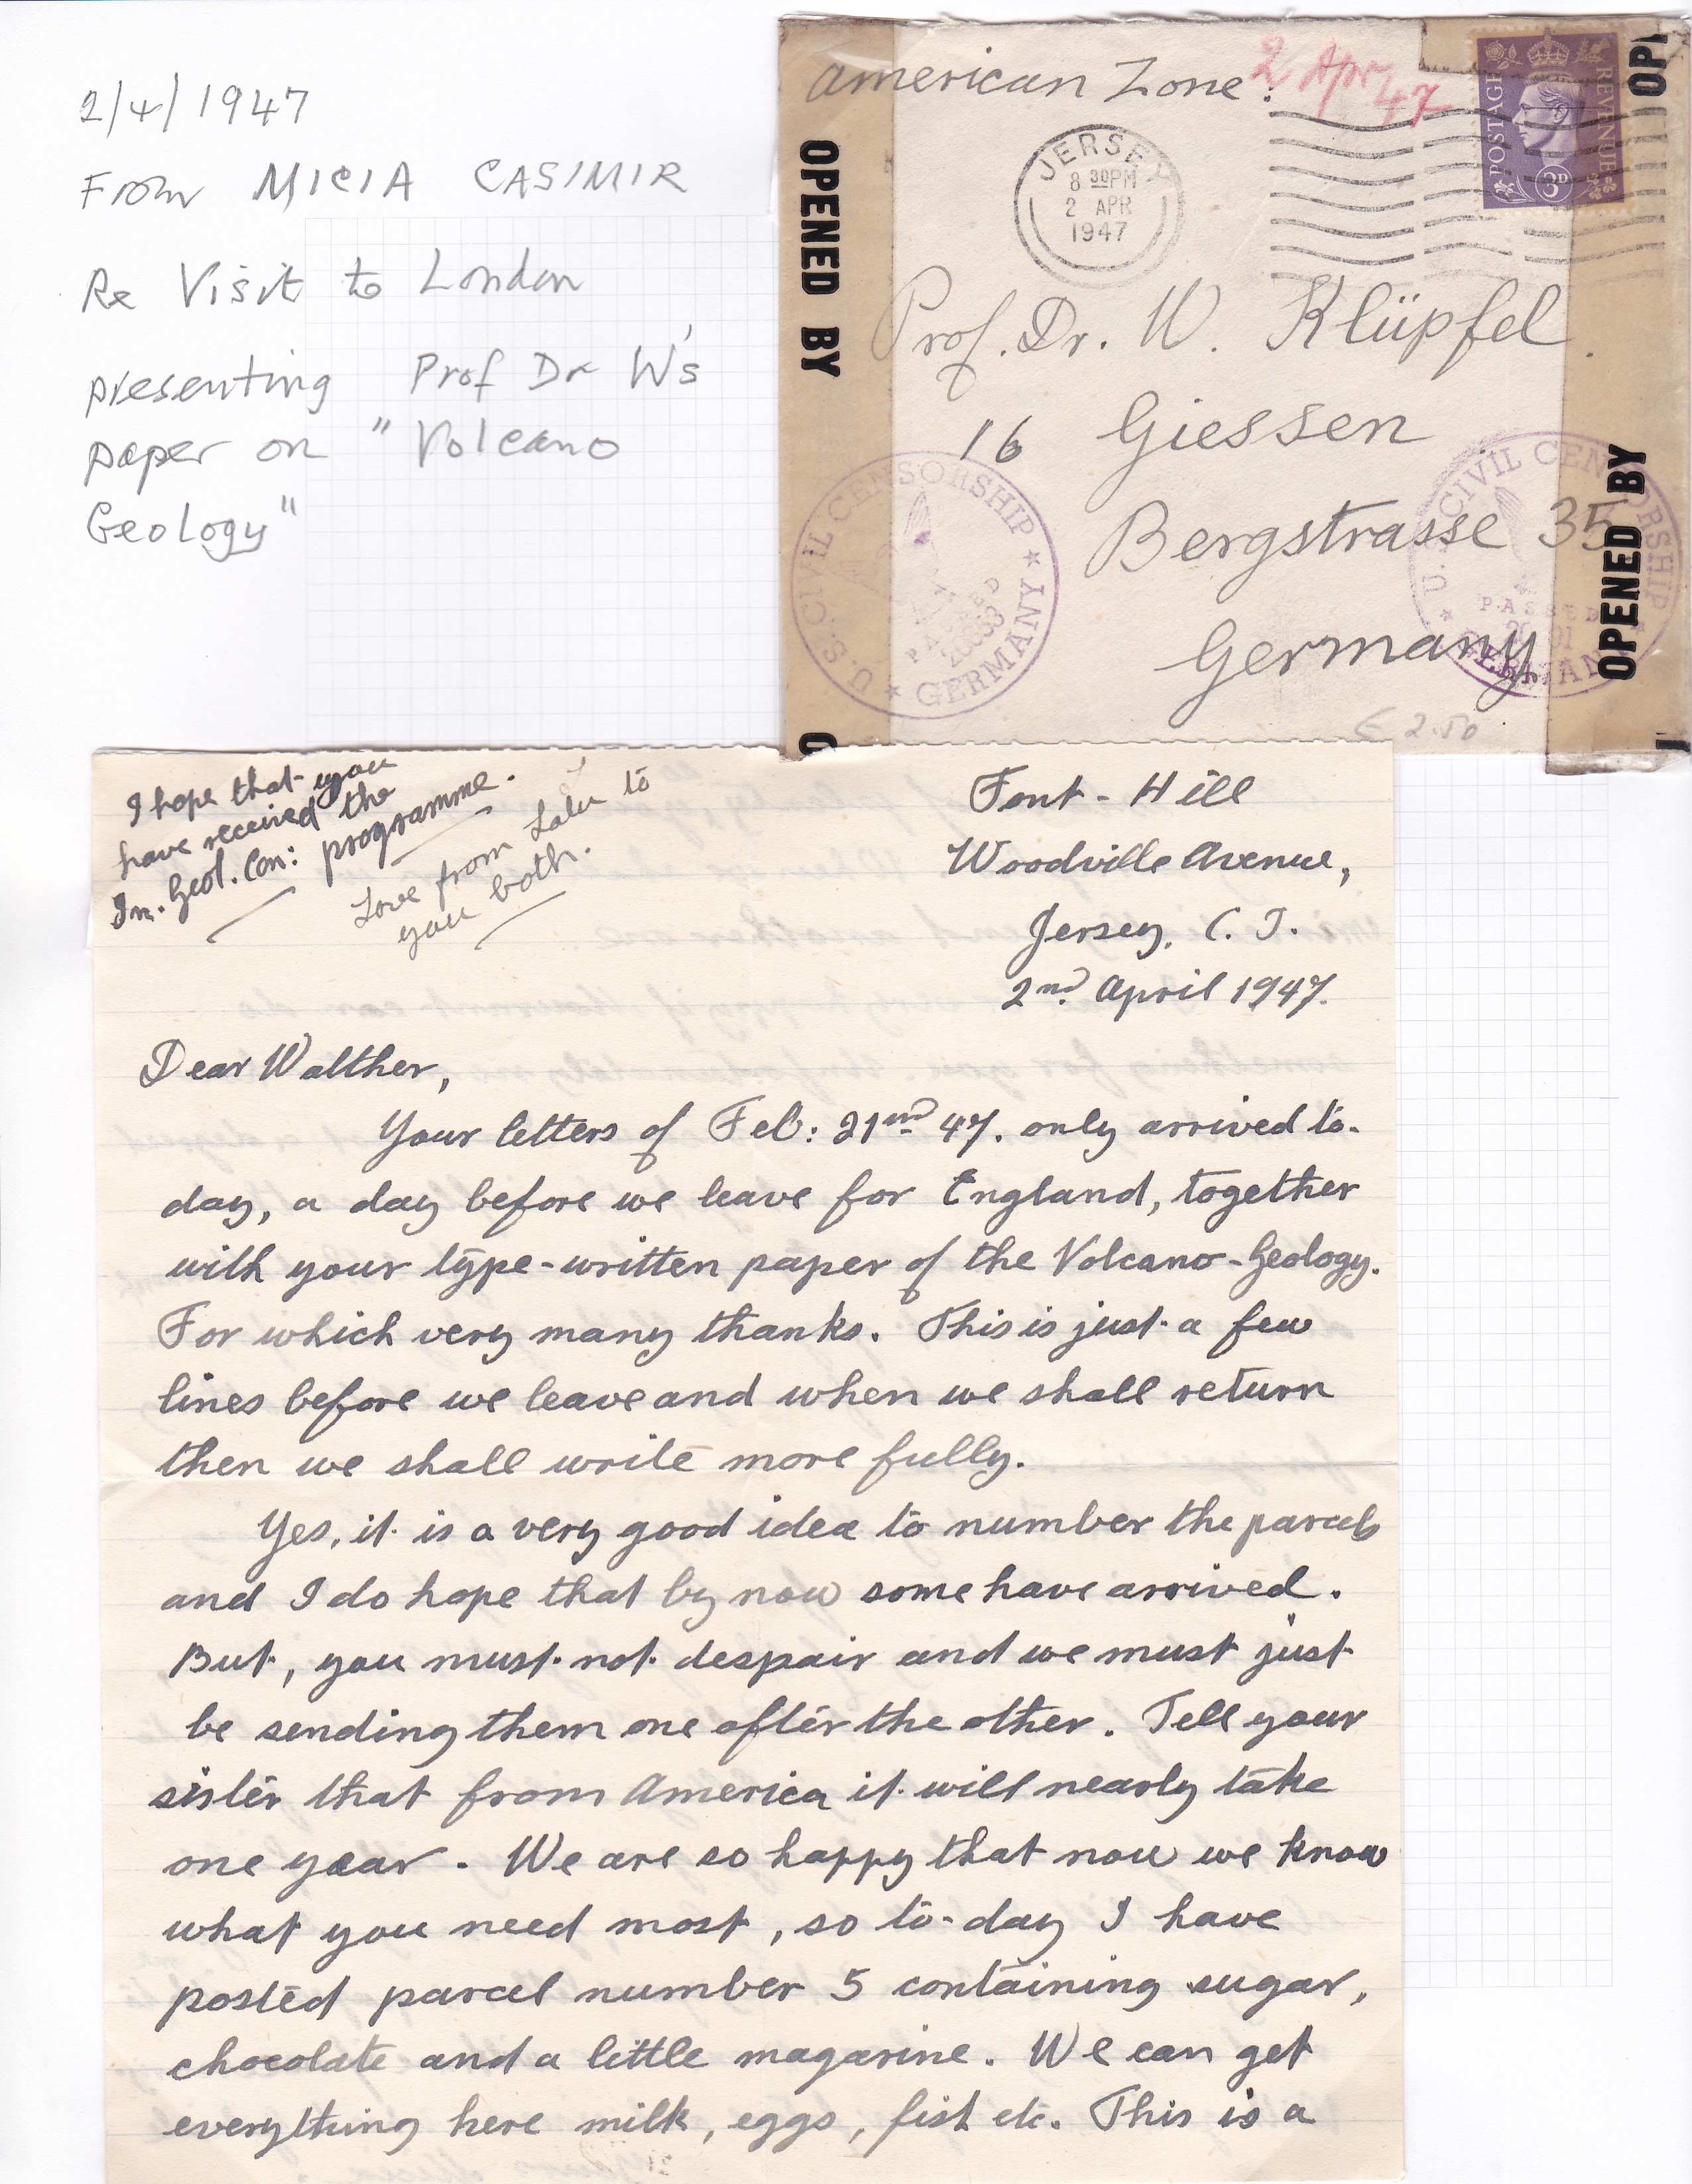 2/4/1947
From MICIA CASIMIR
Re Visit to London
presenting Prof Dr W's
paper on "Volcano
Geology"
American Zone:
2 Apr 47
POSTAGE REVENUE
3D
JERSEY
8 30PM
2 APR
1947
OPENED BY
Prof. Dr. W. Klüpfel.
16 Giessen
Bergstrasse 35
Germany
U.S. CIVIL CENSORSHIP
GERMANY
PASSED
U.S. CIVIL CENSORSHIP
GERMANY
PASSED
OPENED BY
OP
£ 2.50
I hope that you
have received the
In. Geol. Con: programme.
Love from Lalu to
you both.
Font-Hill
Woodville Avenue,
Jersey. C. I.
2nd April 1947.
Dear Walther,
Your letters of Feb: 21nd 47. only arrived to-
day, a day before we leave for England, together
with your type-written paper of the Volcano-Geology.
For which very many thanks. This is just a few
lines before we leave and when we shall return
then we shall write more fully.
Yes, it is a very good idea to number the parcels
and I do hope that by now some have arrived.
But, you must not despair and we must just
be sending them one after the other. Tell your
sister that from America it will nearly take
one year. We are so happy that now we know
what you need most, so to-day I have
posted parcel number 5 containing sugar,
chocolate and a little magarine. We can get
everything here milk, eggs, fish etc. This is a